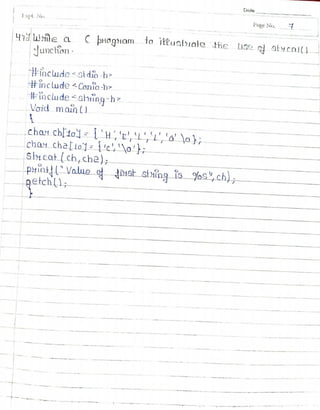 Date
Expt. No.
Page No. 7
47) Write a C program to illustrate the use of strcat()
function.
#include <stdio.h>
#include <Conio.h>
#include <string.h>
Void main()
{
char ch[10] = {'H','E','L','L','O' '\0'};
char ch2[10] = {'c','\0'};
Strcat (ch, ch2);
printf("Value of first string is %s", ch);
getch();
}